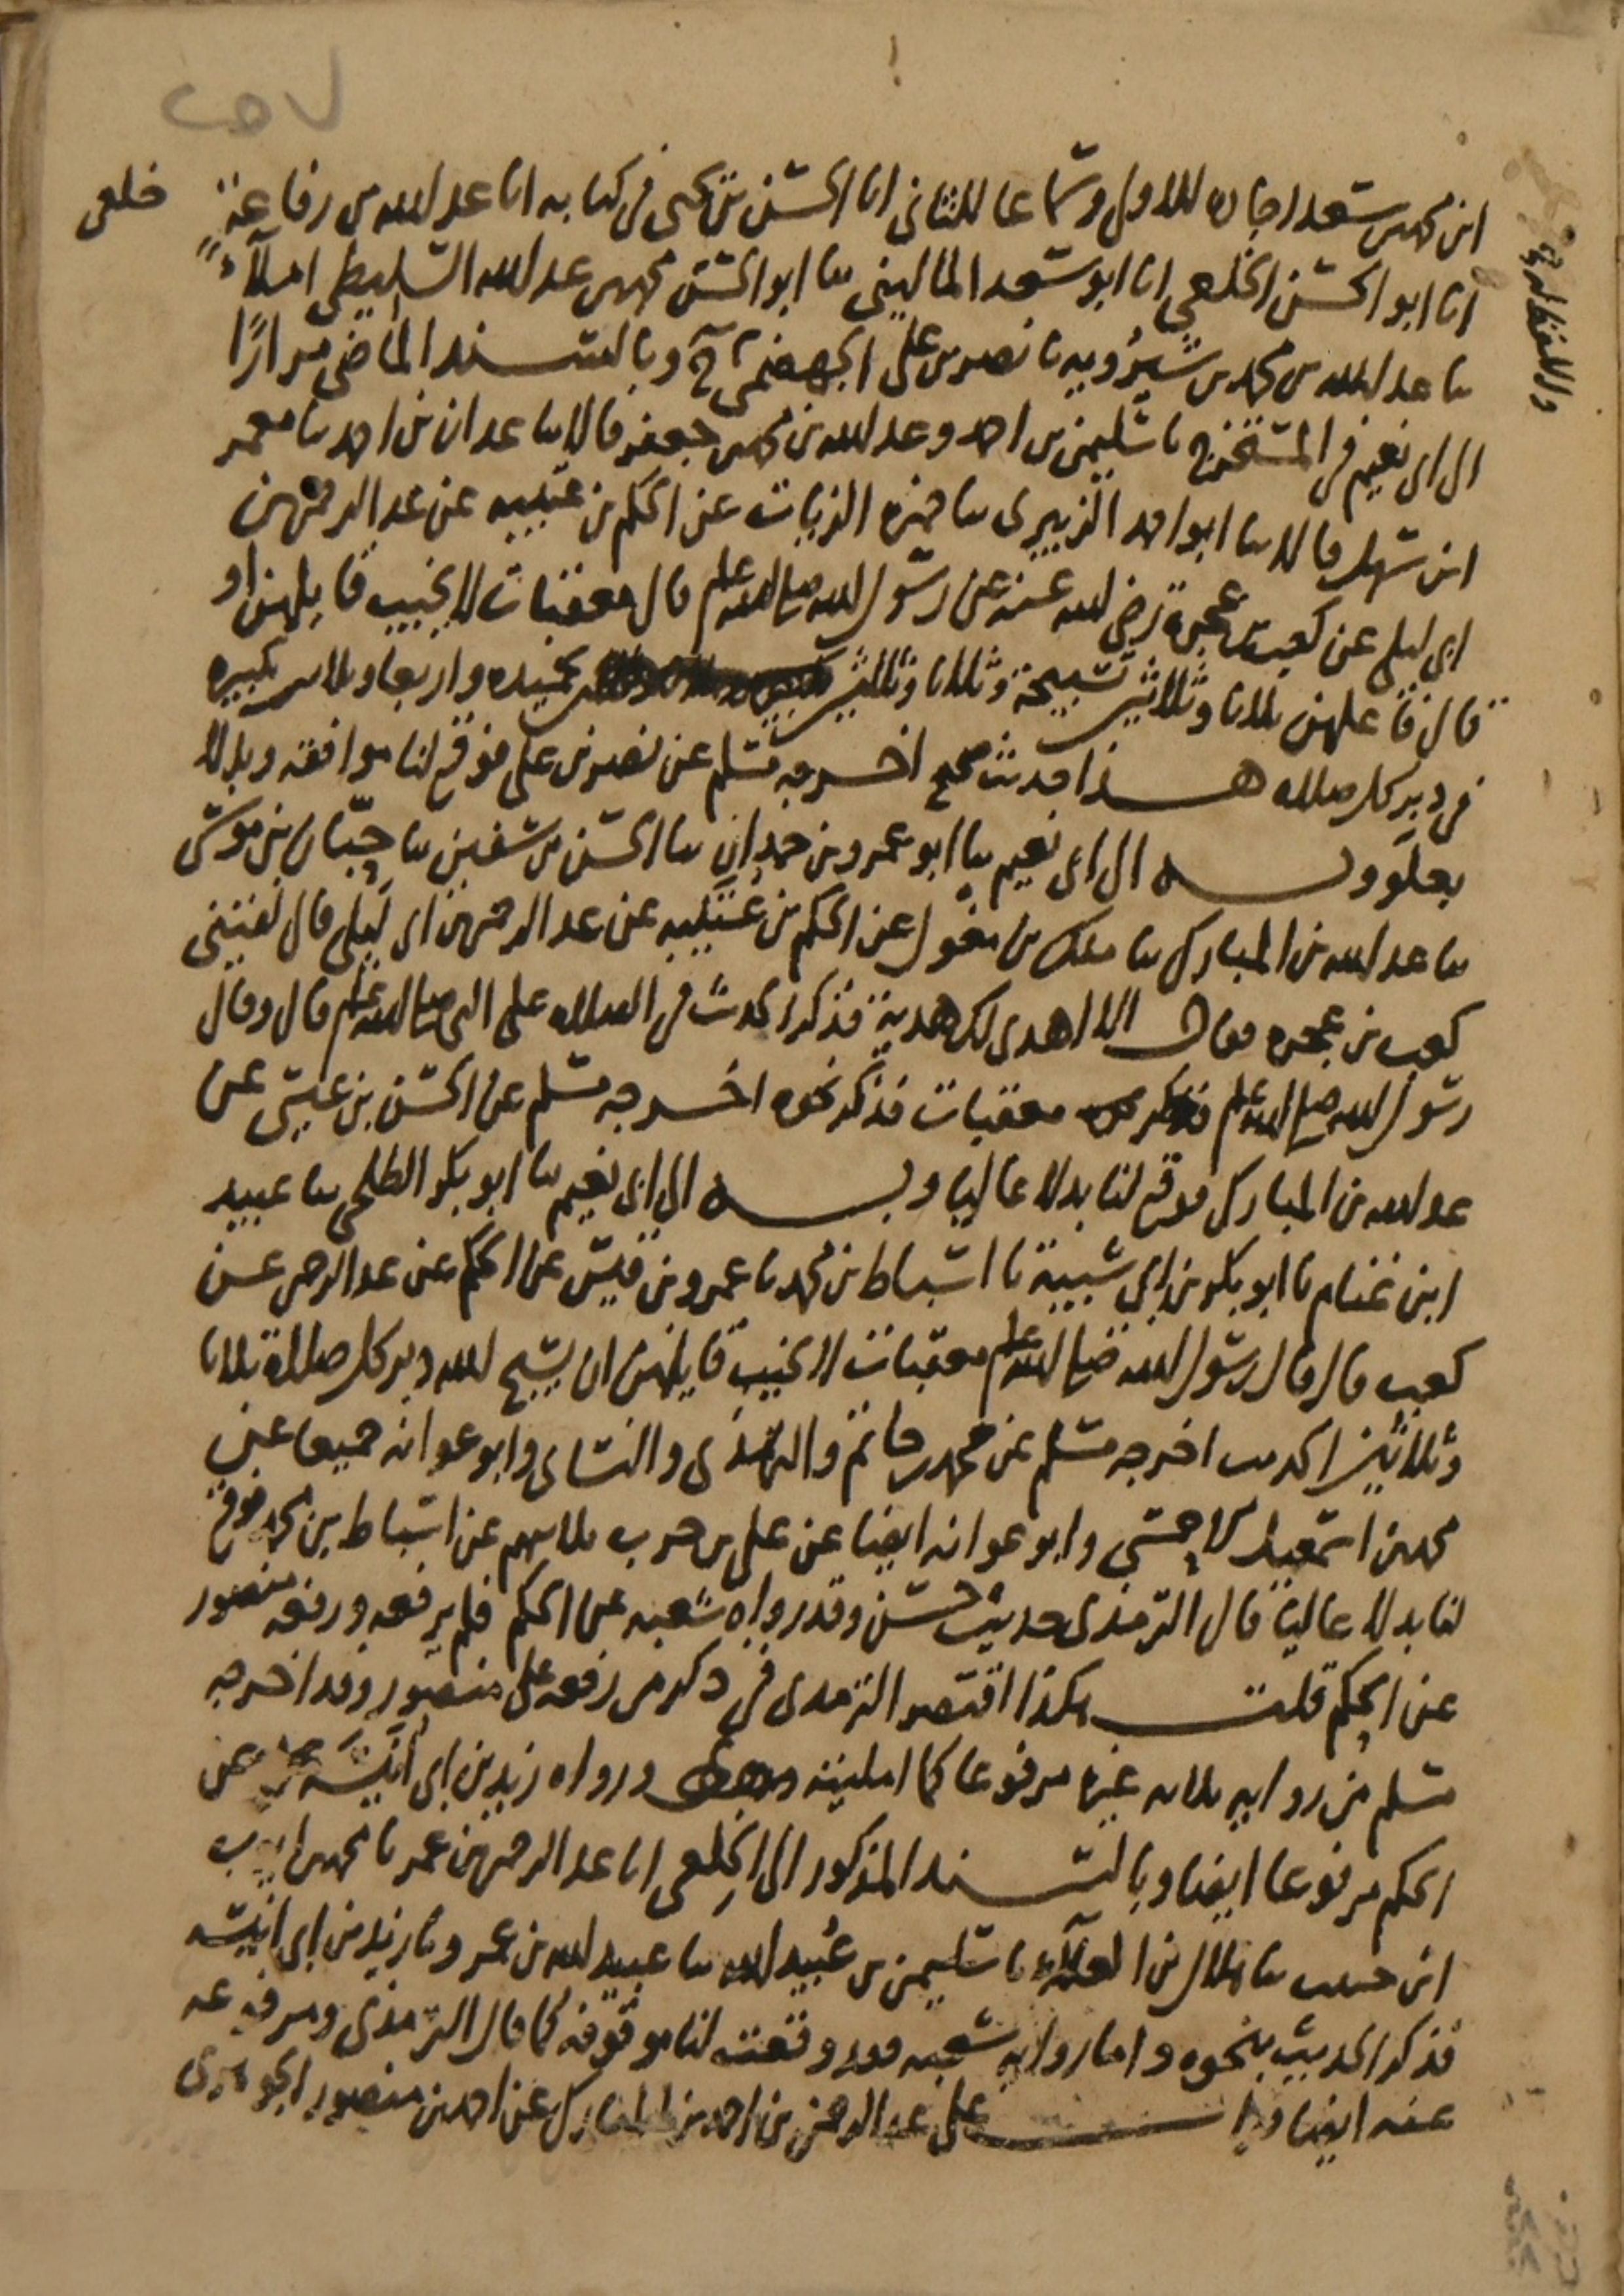 خلعى
واللفظ له
ابن محمد بن سعد اجازه للاول وسماعا للثانى انا الحسن بن يحيى فى كتابه انا عبد الله بن رفاعة
انا ابو الحسن الخلعي انا ابو سعد المالينى سا ابو الحسن محمد بن عبد الله السليطى املاءً
سا عبد الله بن محمد بن شيرويه نا نصر بن على الجهضمى ح وبالسند الماضى مرارًا
الى ابى نعيم فى المستخرج نا سليمن بن احمد وعبد الله بن محمد بن جعفر قالا سا عبدان بن احمد سا معمر
ابن سهل قالا سا ابو احمد الزبيرى سا حمزه الزيات عن الحكم بن عتيبه عن عبد الرحمن بن
ابى ليلى عن كعب بن عجرة رضى الله عنه عن رسول الله صلى الله عليه وسلم قال معقبات لا يخيب قايلهن او
قال فاعلهن ثلاثا وثلاثين تسبيحة وثلاثا وثلاثين تحميده واربعا وثلاثين تكبيره
فى دبر كل صلاه هذا حديث صحيح اخرجه مسلم عن نصر بن على فوقع لنا موافقه وبدلا
بعلو وبه الى ابى نعيم سا ابو عمرو بن حمدان سا الحسن بن سفين سا حبان بن موسى
سا عبد الله بن المبارك سا ملك بن مغول عن الحكم بن عتيبه عن عبد الرحمن بن ابى ليلى قال لقينى
كعب بن عجره فقال الا اهدى لك هدية فذكر الحديث فى الصلاه على النبى صلى الله عليه وسلم قال وقال
رسول الله صلى الله عليه وسلم معقبات فذكر نحوه اخرجه مسلم عن الحسن بن عيسى عن
عبد الله بن المبارك فوقع لنا بدلا عاليا وبه الى ابى نعيم سا ابو بكر الطلحى سا عبيد
ابن غنام نا ابو بكر بن ابى شيبة نا اسباط بن محمد نا عمرو بن قيس عن الحكم عن عبد الرحمن عن
كعب قال قال رسول الله صلى الله عليه وسلم معقبات لا يخيب قايلهن ان يسبح الله دبر كل صلاة ثلاثا
وثلاثين الحديث اخرجه مسلم عن محمد بن حاتم والترمذى والنسائى وابو عوانه جميعا عن
محمد بن اسمعيل الاحمسى وابو عوانه ايضا عن على بن حرب ثلاثتهم عن اسباط بن محمد فوقع
لنا بدلا عاليا قال الترمذى حديث حسن وقد رواه شعبه عن الحكم فلم يرفعه ورفعه منصور
عن الحكم قلت هكذا اقتصر الترمذى فى ذكر من رفعه على منصور وقد اخرجه
مسلم من رواية ثلاثه غيره مرفوعا كما امليته ورواه زيد بن ابى انيسه عن
الحكم مرفوعا ايضا وبالسند المذكور الى الخلعى انا عبد الرحمن بن عمر نا محمد بن ايوب
ابن حبيب سا هلال بن العلاء نا سليمن بن عبيد الله سا عبيد الله بن عمرو نا زيد بن ابى انيسه
فذكر الحديث بنحوه واما رواية شعبه فقد وقعت لنا موقوفه كما قال الترمذى ومرفوعه
عنه ايضا على عبد الرحمن بن احمد بن المبارك عن احمد بن منصور الجوهرى